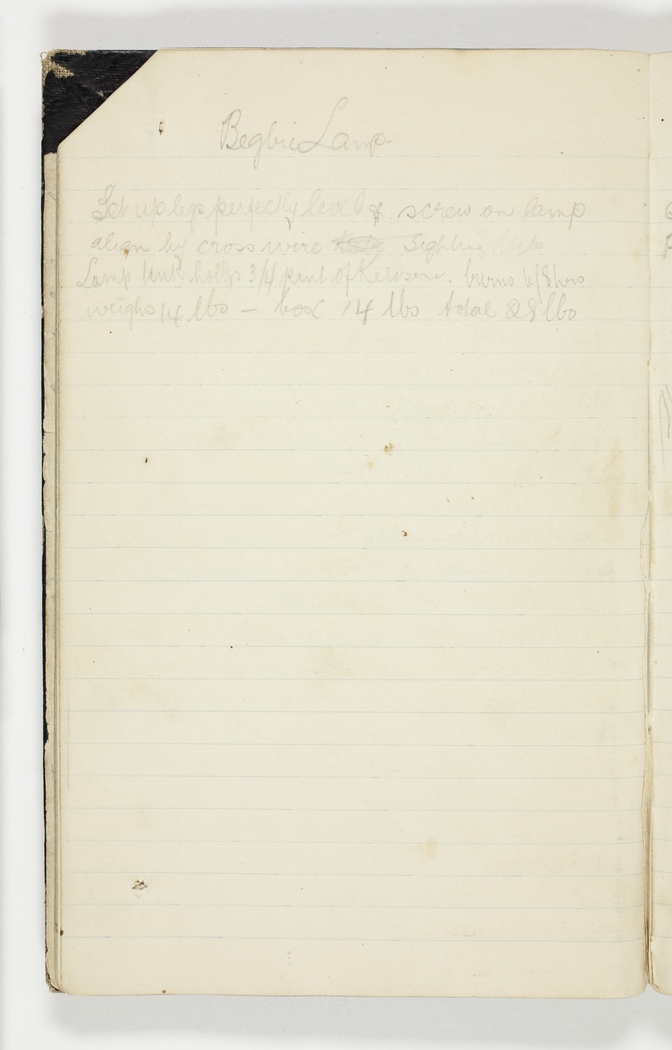 Begbie Lamp
Set up legs perfectly level & screw on lamp
align by cross wire Sighting
Lamp tank holds 3/4 pint of Kerosene. burns 6/8 hors
weighs 14 lbs — box 14 lbs total 28 lbs